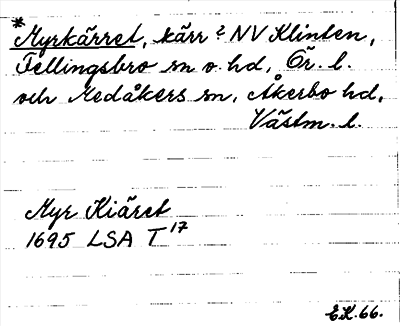 *Myrkärret, kärr ? NV Klinten,
Fellingsbro sn o. hd, Ör. l.
och Medåkers sn, Åkerbo hd,
Västm. l.
Myr Kiäret
1695 LSA T 17
E.K. 66.